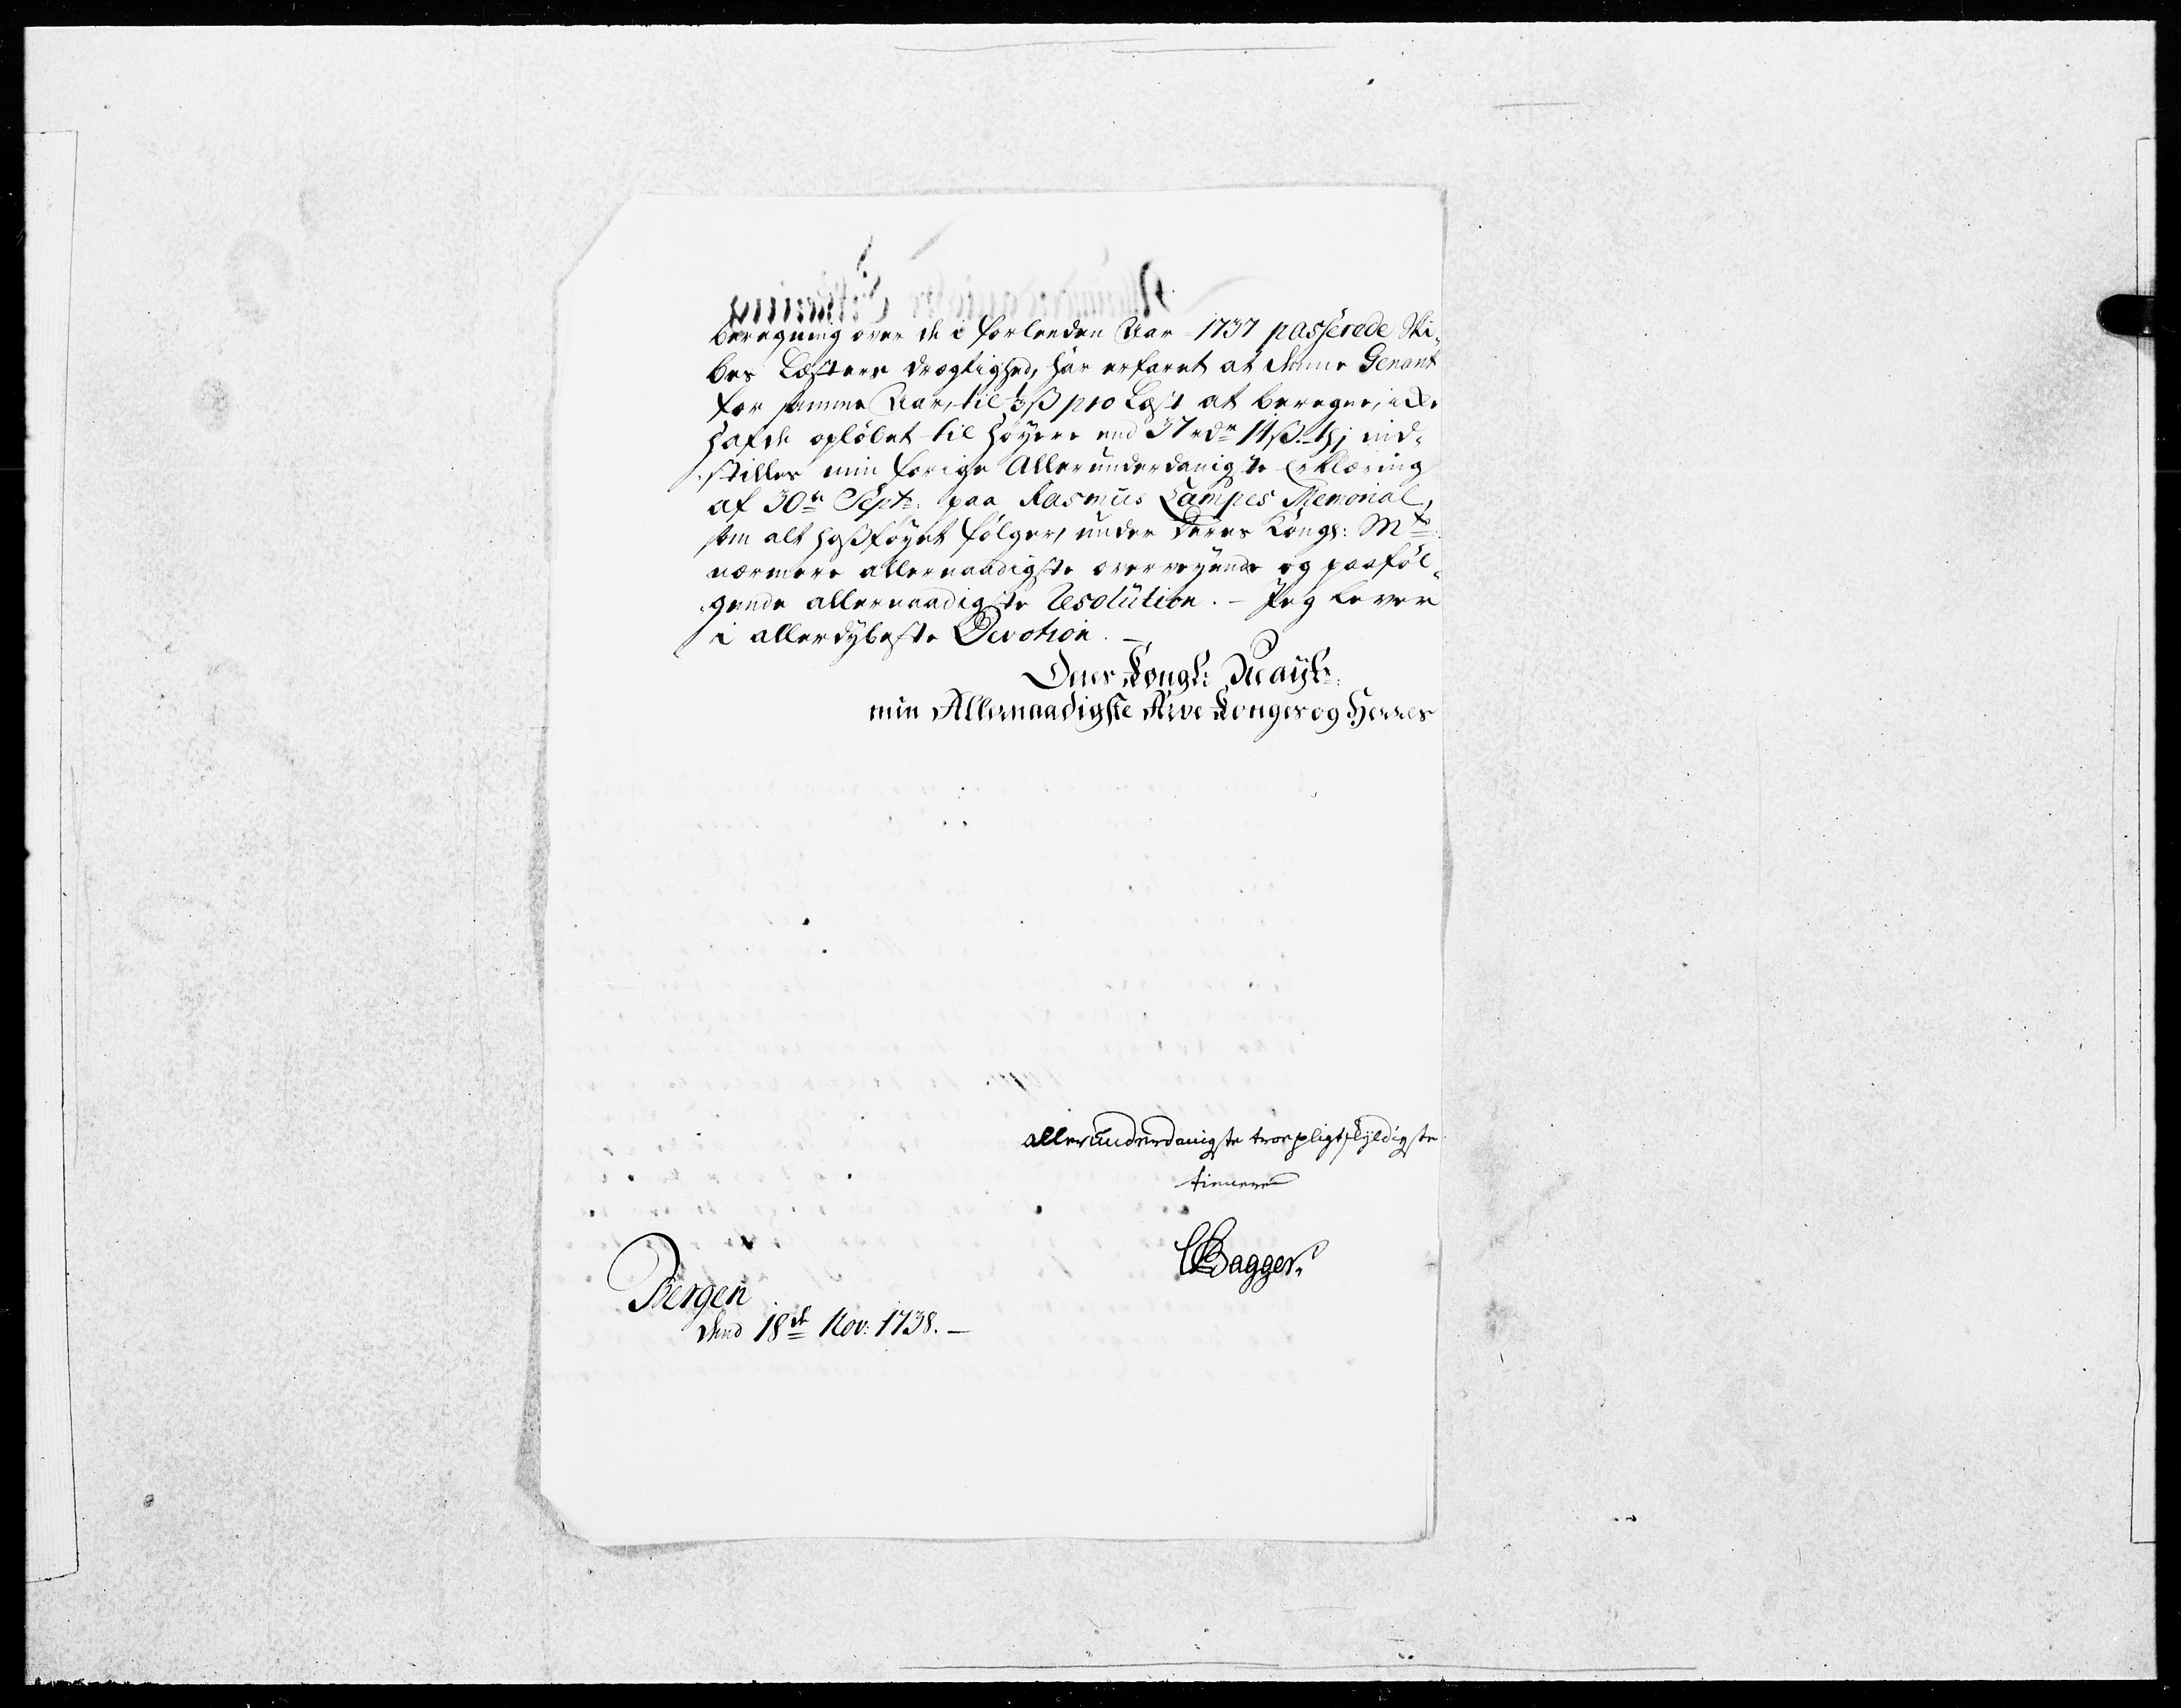 beregning over de i forleeden Aar 1737 passerede Ski-
bes Læsters drægtighed, har erfaret at denne Genant
for samme Aar, til ½ß pro Læst at beregne, icke
hafde opløbet til høyere end 37 rdr 14ß. hj ind-
stilles min forige Allerunderdanigste Erklæring
af 30te Septr: paa Rasmus Lampes Memorial,
som alt hosføyet følger, under Deres Kongl: Mts:
nærmere allernaadigste overveyende og paaføl-
gende allernaadigste Resolution. - Jeg lever
i allerdybeste Devotion. -
Deres Kongl: Mayts:
min Allernaadigste Arve Konges og Herres
allerunderdanigste troepligtskyldigste
tienere
CBagger
Bergen
dend 18de Nov: 1738. -